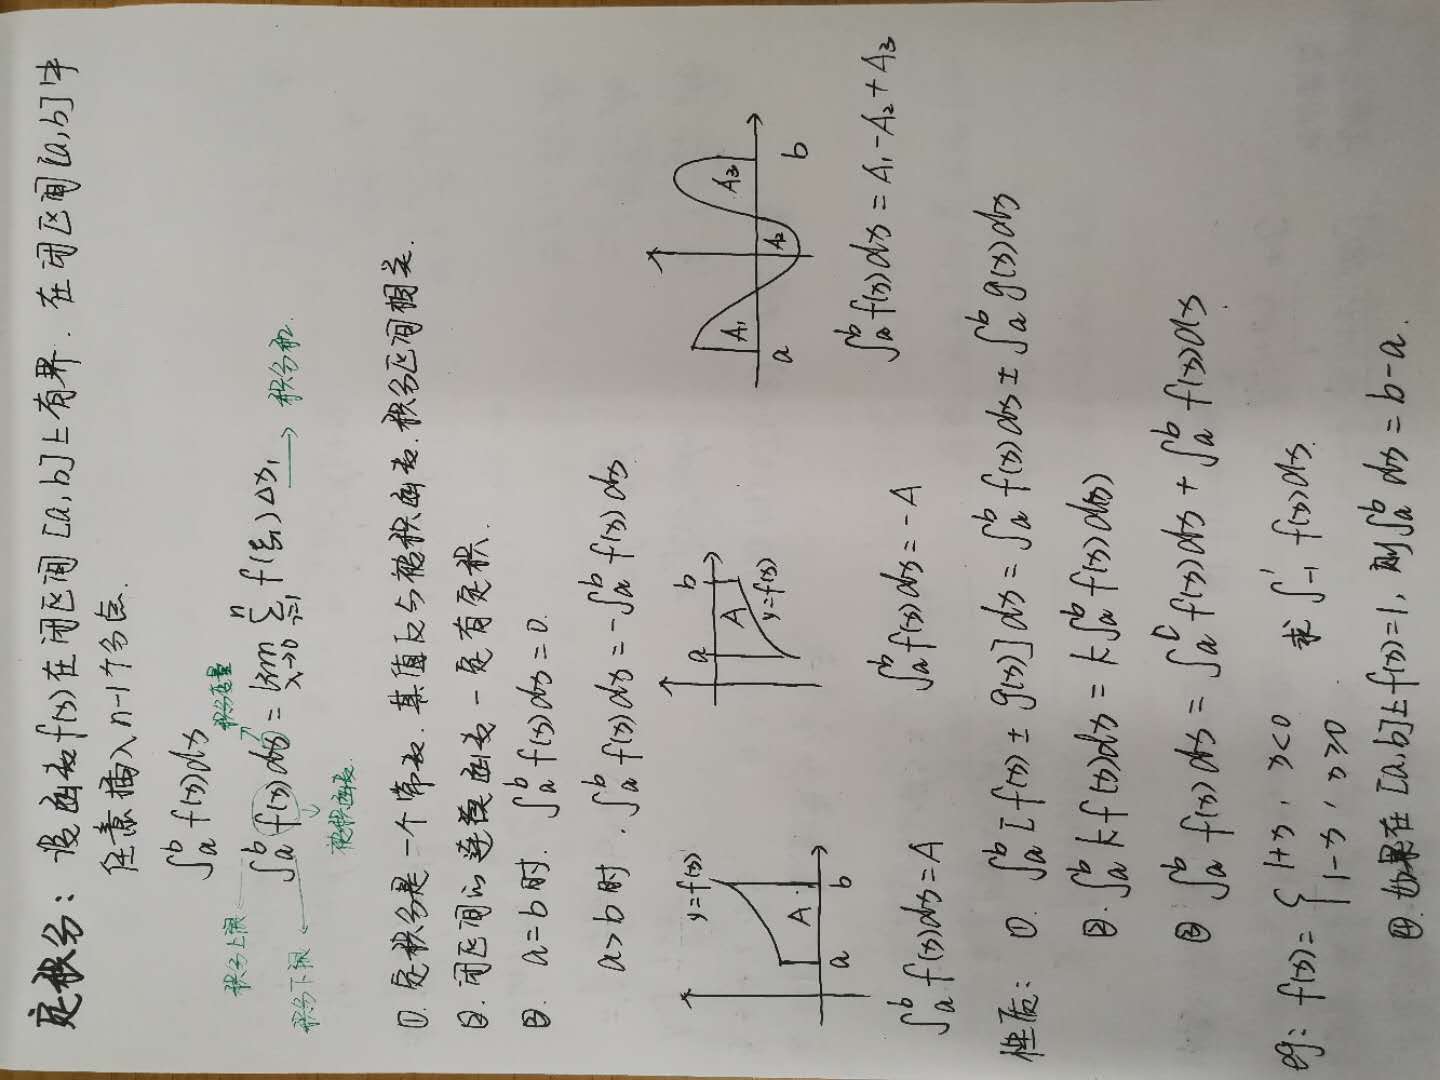 定积分：设函数f(x)在闭区间[a,b]上有界．在闭区间[a,b]中
任意插入n-1个分点.
∫ₐᵇ f(x)dx
积分上限
积分变量
∫ₐᵇ f(x)dx = lim_{λ→0} Σ_{i=1}^{n} f(ξᵢ)Δx₁ → 积分和.
积分下限
被积函数.
①. 定积分是一个常数. 其值仅与被积函数. 积分区间相关.
②. 闭区间的连续函数一定有定积.
③. a=b时. ∫ₐᵇ f(x)dx=0.
a>b时. ∫ₐᵇ f(x)dx=-∫ₐᵇ f(x)dx
y=f(x) A a b
a b A y=f(x)
A₁ A₂ A₃ a b
∫ₐᵇ f(x)dx=A
∫ₐᵇ f(x)dx=-A
∫ₐᵇ f(x)dx=A₁-A₂+A₃
性质: ①. ∫ₐᵇ[f(x)±g(x)]dx=∫ₐᵇ f(x)dx±∫ₐᵇ g(x)dx
②. ∫ₐᵇ kf(x)dx=k∫ₐᵇ f(x)dx)
③ ∫ₐᵇ f(x)dx=∫ₐᶜ f(x)dx+∫ₐᵇ f(x)dx
eg: f(x)={ 1+x, x<0
1-x, x≥0 求∫₋₁¹ f(x)dx.
④. 如果在[a,b]上f(x)=1, 则∫ₐᵇ dx=b-a.